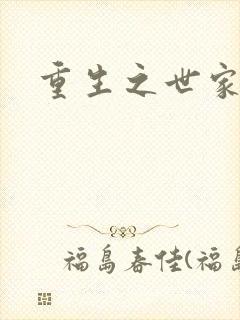 重生之世家
福島春佳(福島